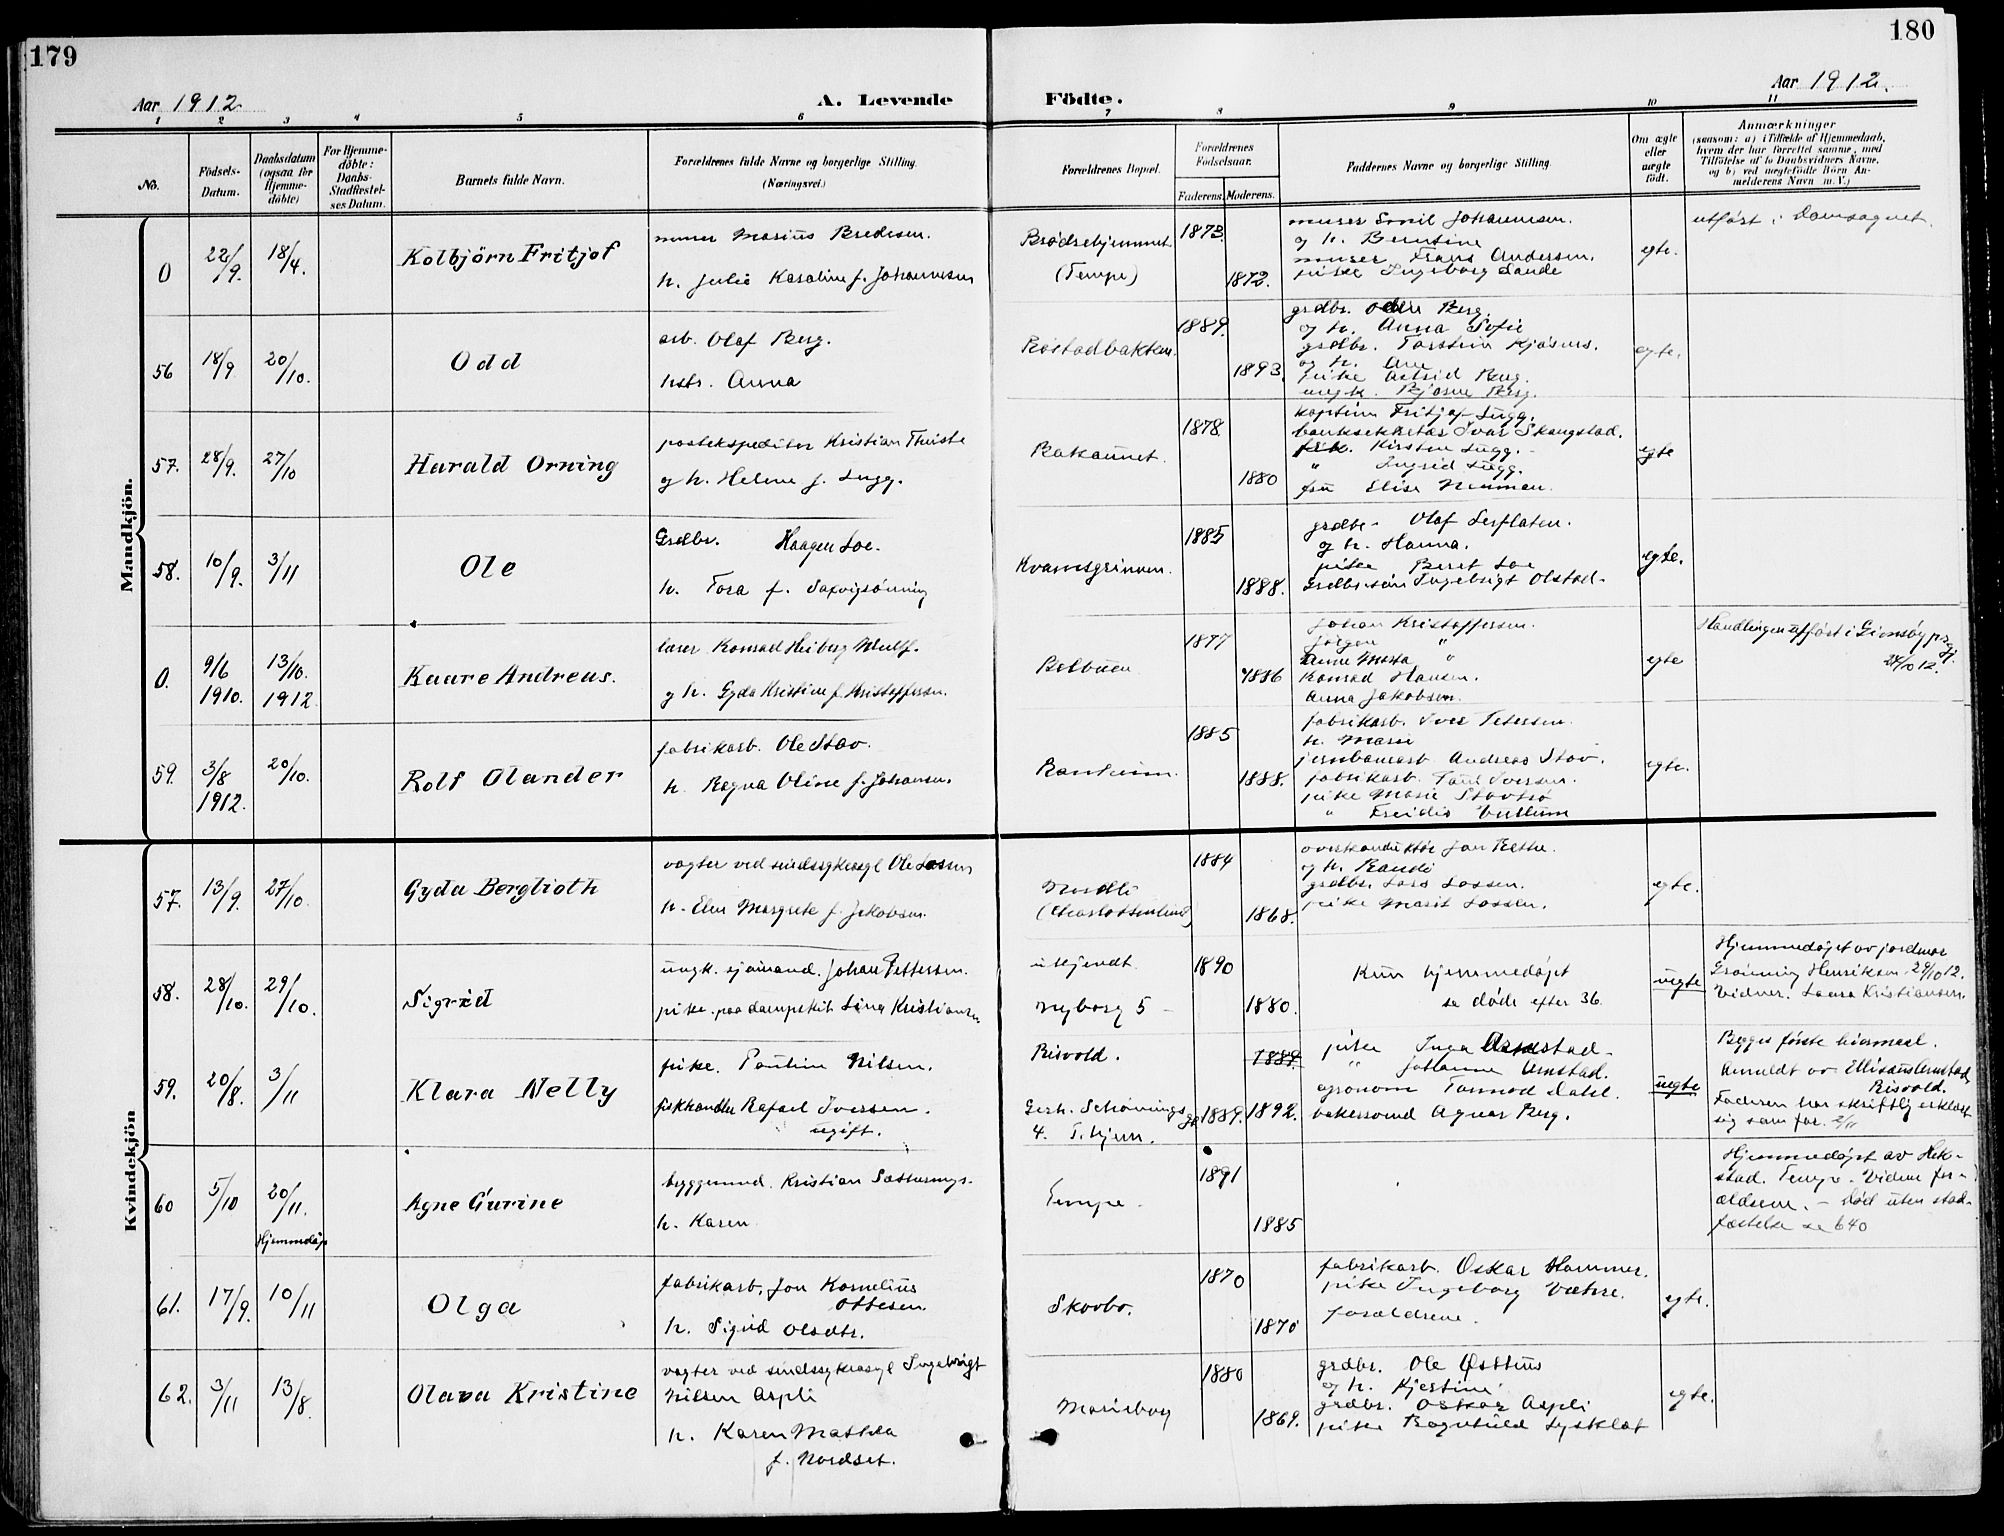 179
180
Aar 1912.
A. Levende
Födte.
Aar 1912.
1
2
3
4
5
6
7
8
9
10
11
No.
Födsels-
Datum.
Daabsdatum
(ogsaa for
Hjemme-
döbte)
For Hjemme-
döbte:
Daabs-
Stadfæstel-
ses Datum.
Barnets fulde Navn.
Forældrenes fulde Navne og borgerlige Stilling.
(Næringsvei.)
Forældrenes Bopæl.
Forældrenes
Fødselsaar.
Faderens.
Moderens.
Faddernes Navne og borgerlige Stilling.
Om ægte
eller
uægte
födt.
Anmærkninger
(saasom: a) i Tilfælde af Hjemmedaab,
hvem der har forrettet samme, med
Tilföielse af to Daabsvidners Navne,
og b) ved uægtefödte Börn An-
melderens Navn m. V.)
Mandkjön.
0
22/9.
18/4.
Kolbjörn Fritjof
murer Marius Bredesen.
h. Julie Karoline f. Johannesen
(Tempe)
1873.
1872.
murer Emil Johannesen.
og h. Berntine
murer Frans Andersen.
pike Ingeborg Sande
egte.
utført i Domsognet.
56
18/9
20/10.
Odd
arb. Olaf Berg.
hstr. Anna
Rostadbakken.
1889.
1893.
grdbr. Berg.
og h. Anna Sofie
grdbr. Torstein
og h.
pike Astrid Berg.
ungk. Bjarne Berg.
egte.
57.
28/9.
27/10
Harald Orning
postekspeditør Kristian Thiste
og h. Helene f. Lugg.
Bakaunet.
1878.
1880
kaptein Fritjof Lugg.
banksekretær Ivar Skaugstad.
frk. Kirsten Lugg.
" Ingrid Lugg.
fru Elise Neuman.
egte
58.
10/9.
3/11
Ole
Grdbr. Haagen Loe.
h. Tora f. Saxvigsønning
Kvamsgrinnen.
1885
1888.
grdbr. Olaf Lerflaten.
og h. Hanna.
pike Beret Loe
Grdbr.søn Ingebrigt Olstad.
egte.
0.
9/6
1910.
13/10.
1912
Kaare Andreas.
lærer Konrad Heiberg Wulf.
og h. Gyda Kristine f. Kristoffersen.
1877
1886
Johan Kristoffersen.
Jörgen "
Anne Marta "
Konrad Hansen.
Anna Jakobsen.
egte
Handlingen utført i Gimsøy prgj.
24/10 12.
59.
3/8
1912.
20/10.
Rolf Olander
fabrikarb. Ole Stav.
h. Ragna Oline f. Johansen.
Ranheim.
1885
1888.
fabrikarb. Iver Petersen.
h. Marie
jernbanearb Andreas Stav.
fabrikarb. Paul Iversen.
pike Marie
" Vullum
egte.
Kvindekjön
57.
13/9.
27/10.
Gyda Berglioth
vogter ved sindssykeasyl Ole Lassen
h. Elen Margrete f. Jakobsen.
Nordli
(Charlottenlund)
1884
1868.
overkonduktør Jon
og h. Randi
grdbr. Lars Lassen.
pike Marit Lassen.
egte.
58.
28/10.
29/10.
Sigrid
ungk. sjømand. Johan Pettersen.
pike paa dampskib Lina Kristiansen
ukjendt.
Nyborg 5
1890
1880.
Kun hjemmedøpt
se døde efter 36
uegte
Hjemmedøpt av jordmor
Grønning Henriksen 29/10 12.
Vidner. Laura Kristiansen.
59.
20/8.
3/11
Klara Nelly
pike. Pauline Nilsen.
fiskhandler Rafael Iversen.
ugift.
Risvold.
Gerh. Schønnings gt
4. T.hjem.
1889.
1889.
1892.
pike Inga Arnstad.
" Johanna Arnstad.
agronom Tormod Dahl.
bakersvend Agnar Berg.
uegte
Begges første leiermaal.
Anmeldt av
Risvold.
Faderen har skriftlig erklært
sig som far. 2/11
60
5/10
20/11.
Hjemmedøp
Agne Gurine
byggmand. Kristian
h. Karen.
Tempe.
1891
1885
Hjemmedøpt av
stad. Tempe. Vidne for-
ældrene. - Død uten stad-
fæstelse se 640
61.
17/9.
10/11
Olga
fabrikarb. Jon Kornelius
Ottesen.
h. Sigrid Olsdtr.
Skovbo.
1870
1870
fabrikarb. Oskar Hammer.
pike Ingeborg
forældrene.
egte.
62.
3/11
13/8.
Olava Kristine
vogter ved sindssykeasyl Ingebrigt
Nilsen Aspli
h. Karen Matilda
f. Nordset.
Marieborg
1880
1869.
grdbr. Ole Østhus
og h. Kjerstine
grdbr. Oskar Aspli
pike Ragnhild
egte.